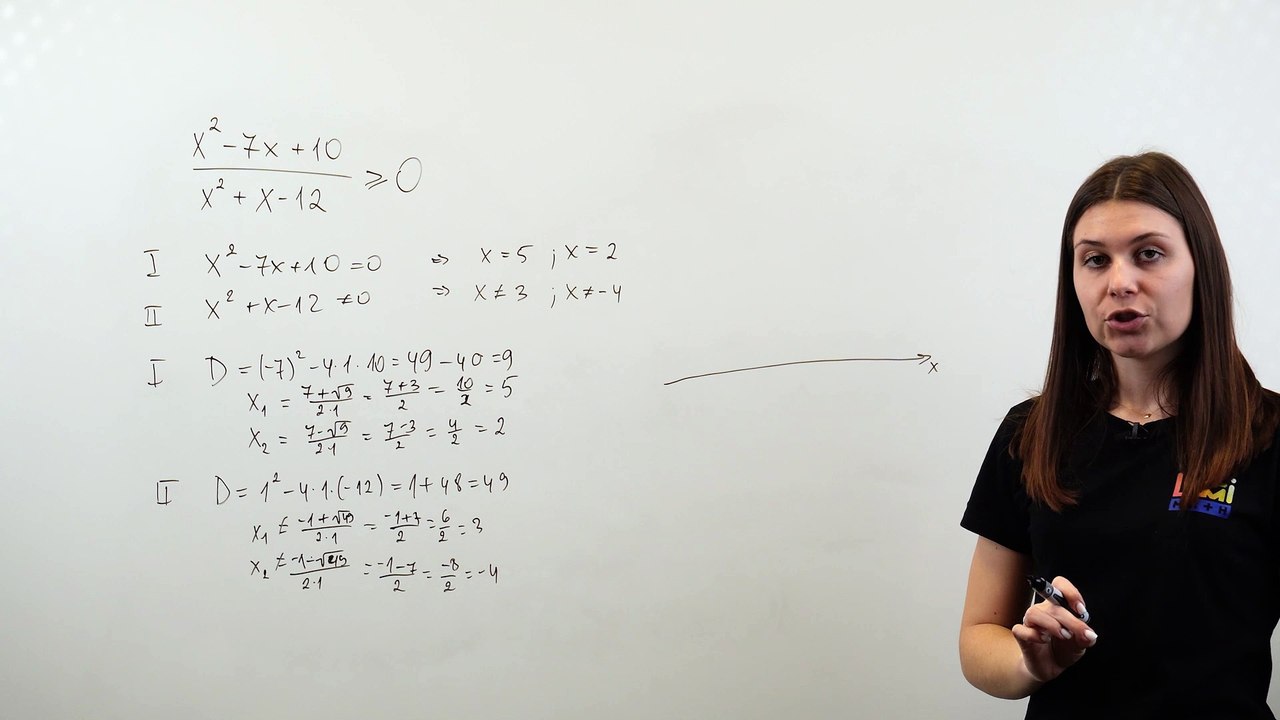 x² - 7x + 10
x² + x - 12
≥ 0
I x² - 7x + 10 = 0 ⇒ x = 5 ; x = 2
II x² + x - 12 ≠ 0 ⇒ x ≠ 3 ; x ≠ -4
I D = (-7)² - 4·1·10 = 49 - 40 = 9
x₁ = (7+√9)/(2·1) = (7+3)/2 = 10/2 = 5
x₂ = (7-√9)/(2·1) = (7-3)/2 = 4/2 = 2
x
II D = 1² - 4·1·(-12) = 1 + 48 = 49
x₁ ≠ (-1+√49)/(2·1) = (-1+7)/2 = 6/2 = 3
x₂ ≠ (-1-√49)/(2·1) = (-1-7)/2 = -8/2 = -4